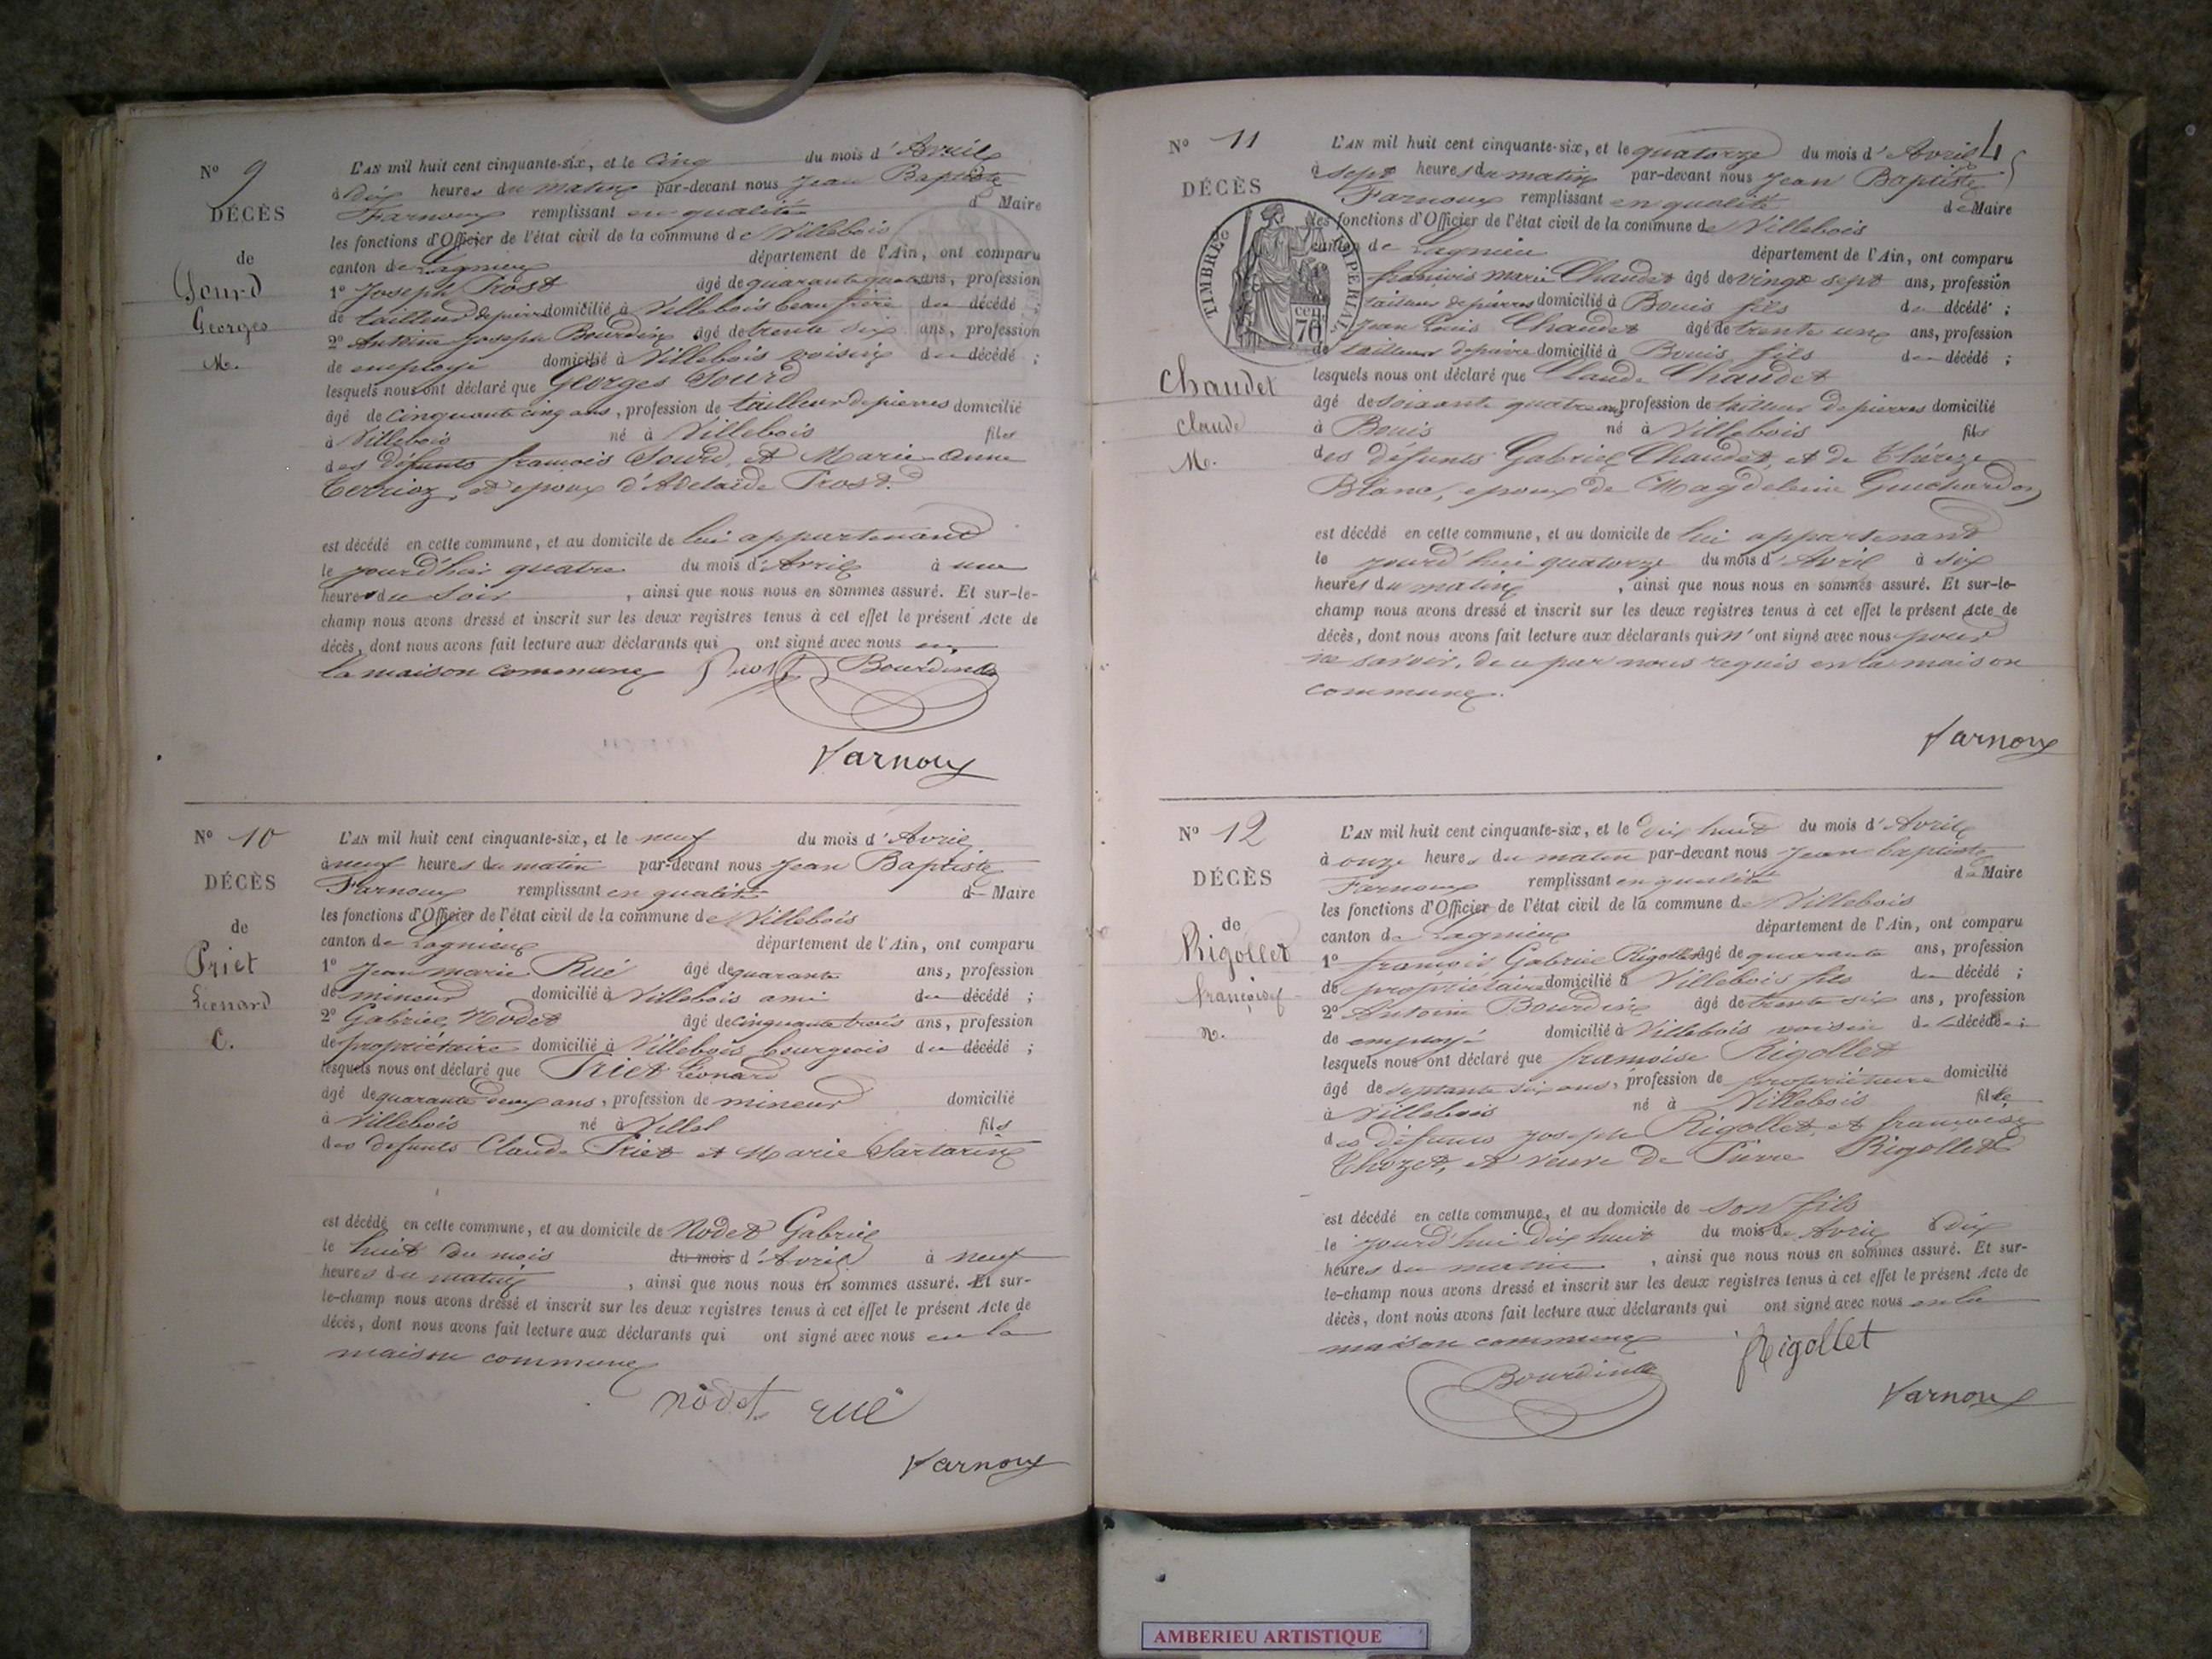 N° 9
DÉCÈS
de
Sourd
Georges
M.
L'AN mil huit cent cinquante-six, et le Cinq du mois d'Avril
à Dix heures du matin par-devant nous Jean Baptiste
Farnoux remplissant en qualité d Maire
les fonctions d'Officier de l'état civil de la commune de Villebois
canton de Lagnieu département de l'Ain, ont comparu
1° Joseph Prost âgé de quarante ans, profession
de tailleur de pierre domicilié à Villebois beau frère du décédé ;
2° Antoine Joseph Bourdin âgé de trente six ans, profession
de employé domicilié à Villebois voisin du décédé ;
lesquels nous ont déclaré que Georges Sourd
âgé de cinquante cinq ans, profession de tailleur de pierres domicilié
à Villebois né à Villebois fils
des défunts françois Sourd, et Marie-Anne
Terrioz, et époux d'Adelaïde Prost.
est décédé en cette commune, et au domicile de lui appartenant
le jourd'hui quatre du mois d'Avril à une
heure du soir, ainsi que nous nous en sommes assuré. Et sur-le-
champ nous avons dressé et inscrit sur les deux registres tenus à cet effet le présent Acte de
décès, dont nous avons fait lecture aux déclarants qui ont signé avec nous en
la maison commune Prost Bourdin
Farnoux
N° 10
DÉCÈS
de
Priet
Léonard
C.
L'AN mil huit cent cinquante-six, et le neuf du mois d'Avril
à neuf heures du matin par-devant nous Jean Baptiste
Farnoux remplissant en qualité de Maire
les fonctions d'Officier de l'état civil de la commune de Villebois
canton de Lagnieu département de l'Ain, ont comparu
1° Jean marie Rué âgé de quarante ans, profession
de mineur domicilié à Villebois ami du décédé ;
2° Gabriel Nodet âgé de cinquante trois ans, profession
de propriétaire domicilié à Villebois bourgeois du décédé ;
lesquels nous ont déclaré que Priet Léonard
âgé de quarante deux ans, profession de mineur domicilié
à Villebois né à Villel fils
des défunts Claude Priet et Marie Sartarin
est décédé en cette commune, et au domicile de Nodet Gabriel
le huit du mois du mois d'Avril à neuf
heures du matin, ainsi que nous nous en sommes assuré. Et sur-
le-champ nous avons dressé et inscrit sur les deux registres tenus à cet effet le présent Acte de
décès, dont nous avons fait lecture aux déclarants qui ont signé avec nous en la
maison commune
nodet rué
Farnoux
N° 11
DÉCÈS
TIMBRE IMPERIAL
CEN. 70
Chaudet
Claude
M.
L'AN mil huit cent cinquante-six, et le quatorze du mois d'Avril 4
à sept heures du matin par-devant nous Jean Baptiste
Farnoux remplissant en qualité de Maire
les fonctions d'Officier de l'état civil de la commune de Villebois
canton de Lagnieu département de l'Ain, ont comparu
françois marie Chaudet âgé de vingt sept ans, profession
tailleur de pierres domicilié à Bouis fils du décédé ;
Jean Louis Chaudet âgé de trente une ans, profession
de tailleur de pierre domicilié à Bouis fils du décédé ;
lesquels nous ont déclaré que Claude Chaudet
âgé de soixante quatre ans profession de tailleur de pierres domicilié
à Bouis né à Villebois fils
des défunts Gabriel Chaudet, et de Thérèze
Blanc, époux de Magdeleine Guichardon
est décédé en cette commune, et au domicile de lui appartenant
le jourd'hui quatorze du mois d'Avril à six
heures du matin, ainsi que nous nous en sommes assuré. Et sur-le-
champ nous avons dressé et inscrit sur les deux registres tenus à cet effet le présent Acte de
décès, dont nous avons fait lecture aux déclarants qui n'ont signé avec nous pour
ne savoir, de ce par nous requis en la maison
commune.
Farnoux
N° 12
DÉCÈS
de
Rigollet
françoise
L'AN mil huit cent cinquante-six, et le Dix huit du mois d'Avril
à onze heures du matin par-devant nous Jean baptiste
Farnoux remplissant en qualité de Maire
les fonctions d'Officier de l'état civil de la commune de Villebois
canton de Lagnieu département de l'Ain, ont comparu
1° françois Gabriel Rigollet âgé de quarante ans, profession
de propriétaire domicilié à Villebois fils du décédé ;
2° Antoine Bourdin âgé de trente six ans, profession
de employé domicilié à Villebois voisin de la décédée ;
lesquels nous ont déclaré que françoise Rigollet
âgé de septante six ans, profession de propriétaire domicilié
à Villebois né à Villebois fille
des défunts Joseph Rigollet, et françoise
Thozet, et veuve de Pierre Rigollet
est décédé en cette commune, et au domicile de son fils
le jourd'hui dix huit du mois de Avril à Dix
heures du matin, ainsi que nous nous en sommes assuré. Et sur-
le-champ nous avons dressé et inscrit sur les deux registres tenus à cet effet le présent Acte de
décès, dont nous avons fait lecture aux déclarants qui ont signé avec nous en la
maison commune Rigollet
Bourdin
Farnoux
AMBERIEU ARTISTIQUE